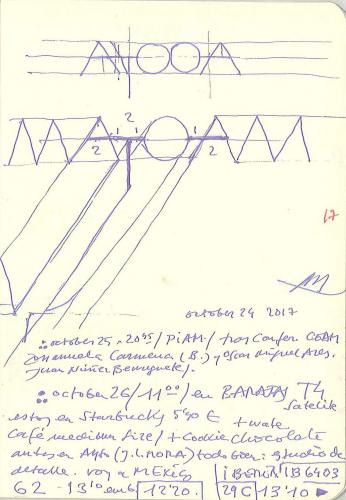 ANOOA
1 2 1
2 2
17
october 24 2017
october 25 - 20 45 / PiAM / tras Confer. COAM
Manuela Carmena (B.) y Oscar Miguel Ares.
Juan Núñez Berruguete /.
october 26 / 11 00 / en BARAJAS T4
Satelite
estoy en Starbucks 5'90 € + water
café medium size / + cookie chocolate
antes en Ayto (J.L. MORA) todo bien: estudio de
detalle. voy a MEXICO iBERIA IB6403
G2 - 13'10 emb 12'20. 29C 13'10